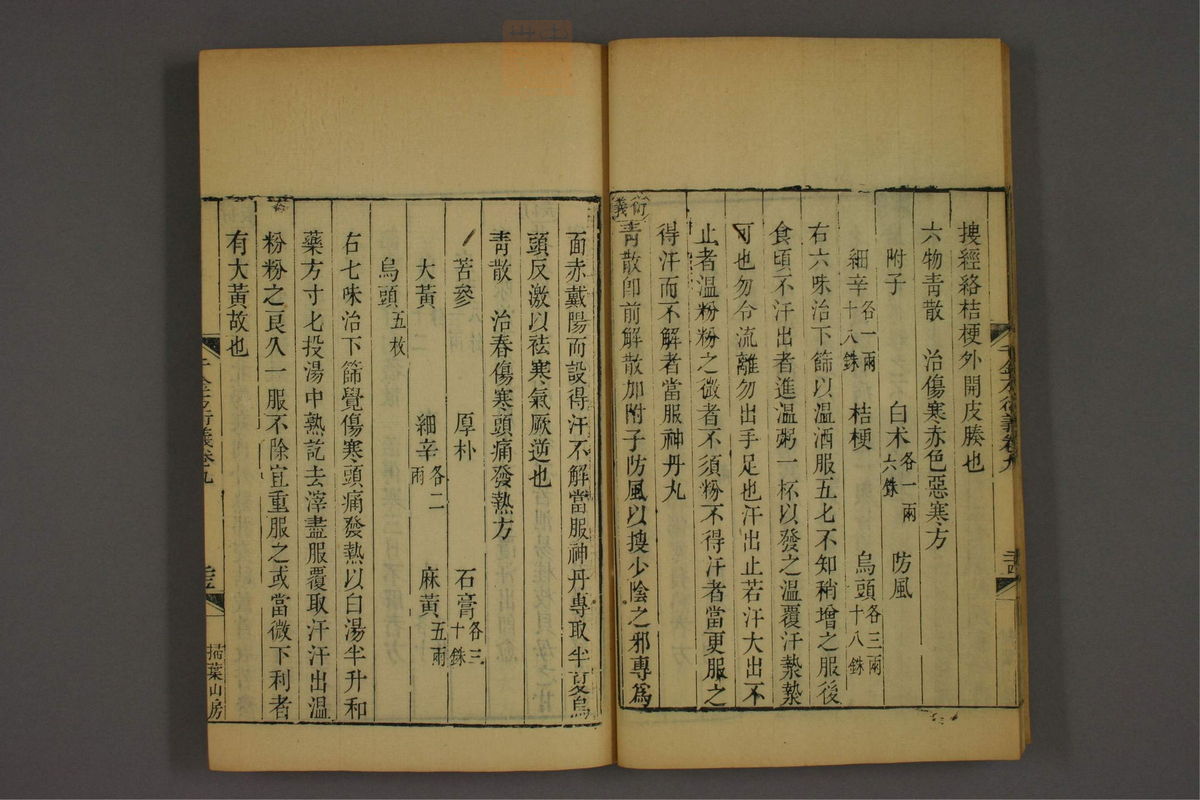 搜經絡桔梗外開皮腠也
六物青散　治傷寒赤色惡寒方
附子　白朮各一兩六銖　防風
細辛各一兩十八銖　桔梗　烏頭各三兩十八銖
右六味治下篩以溫酒服五七不知稍增之服後
食頃不汗出者進溫粥一杯以發之溫覆汗漐漐
可也勿令流離勿出手足也汗出止若汗大出不
止者溫粉粉之微者不須粉不得汗者當更服之
得汗而不解者當服神丹丸
衍義
青散卽前解散加附子防風以搜少陰之邪專爲
千金方衍義卷九
三十四
面赤戴陽而設得汗不解當服神丹專取半夏烏
頭反激以祛寒氣厥逆也
青散　治春傷寒頭痛發熱方
苦參　厚朴　石膏各三十銖
大黃　細辛各二兩　麻黃五兩
烏頭五枚
右七味治下篩覺傷寒頭痛發熱以白湯半升和
藥方寸匕投湯中熟訖去滓盡服覆取汗汗出溫
粉粉之良久一服不除宜重服之或當微下利者
有大黃故也
掃葉山房